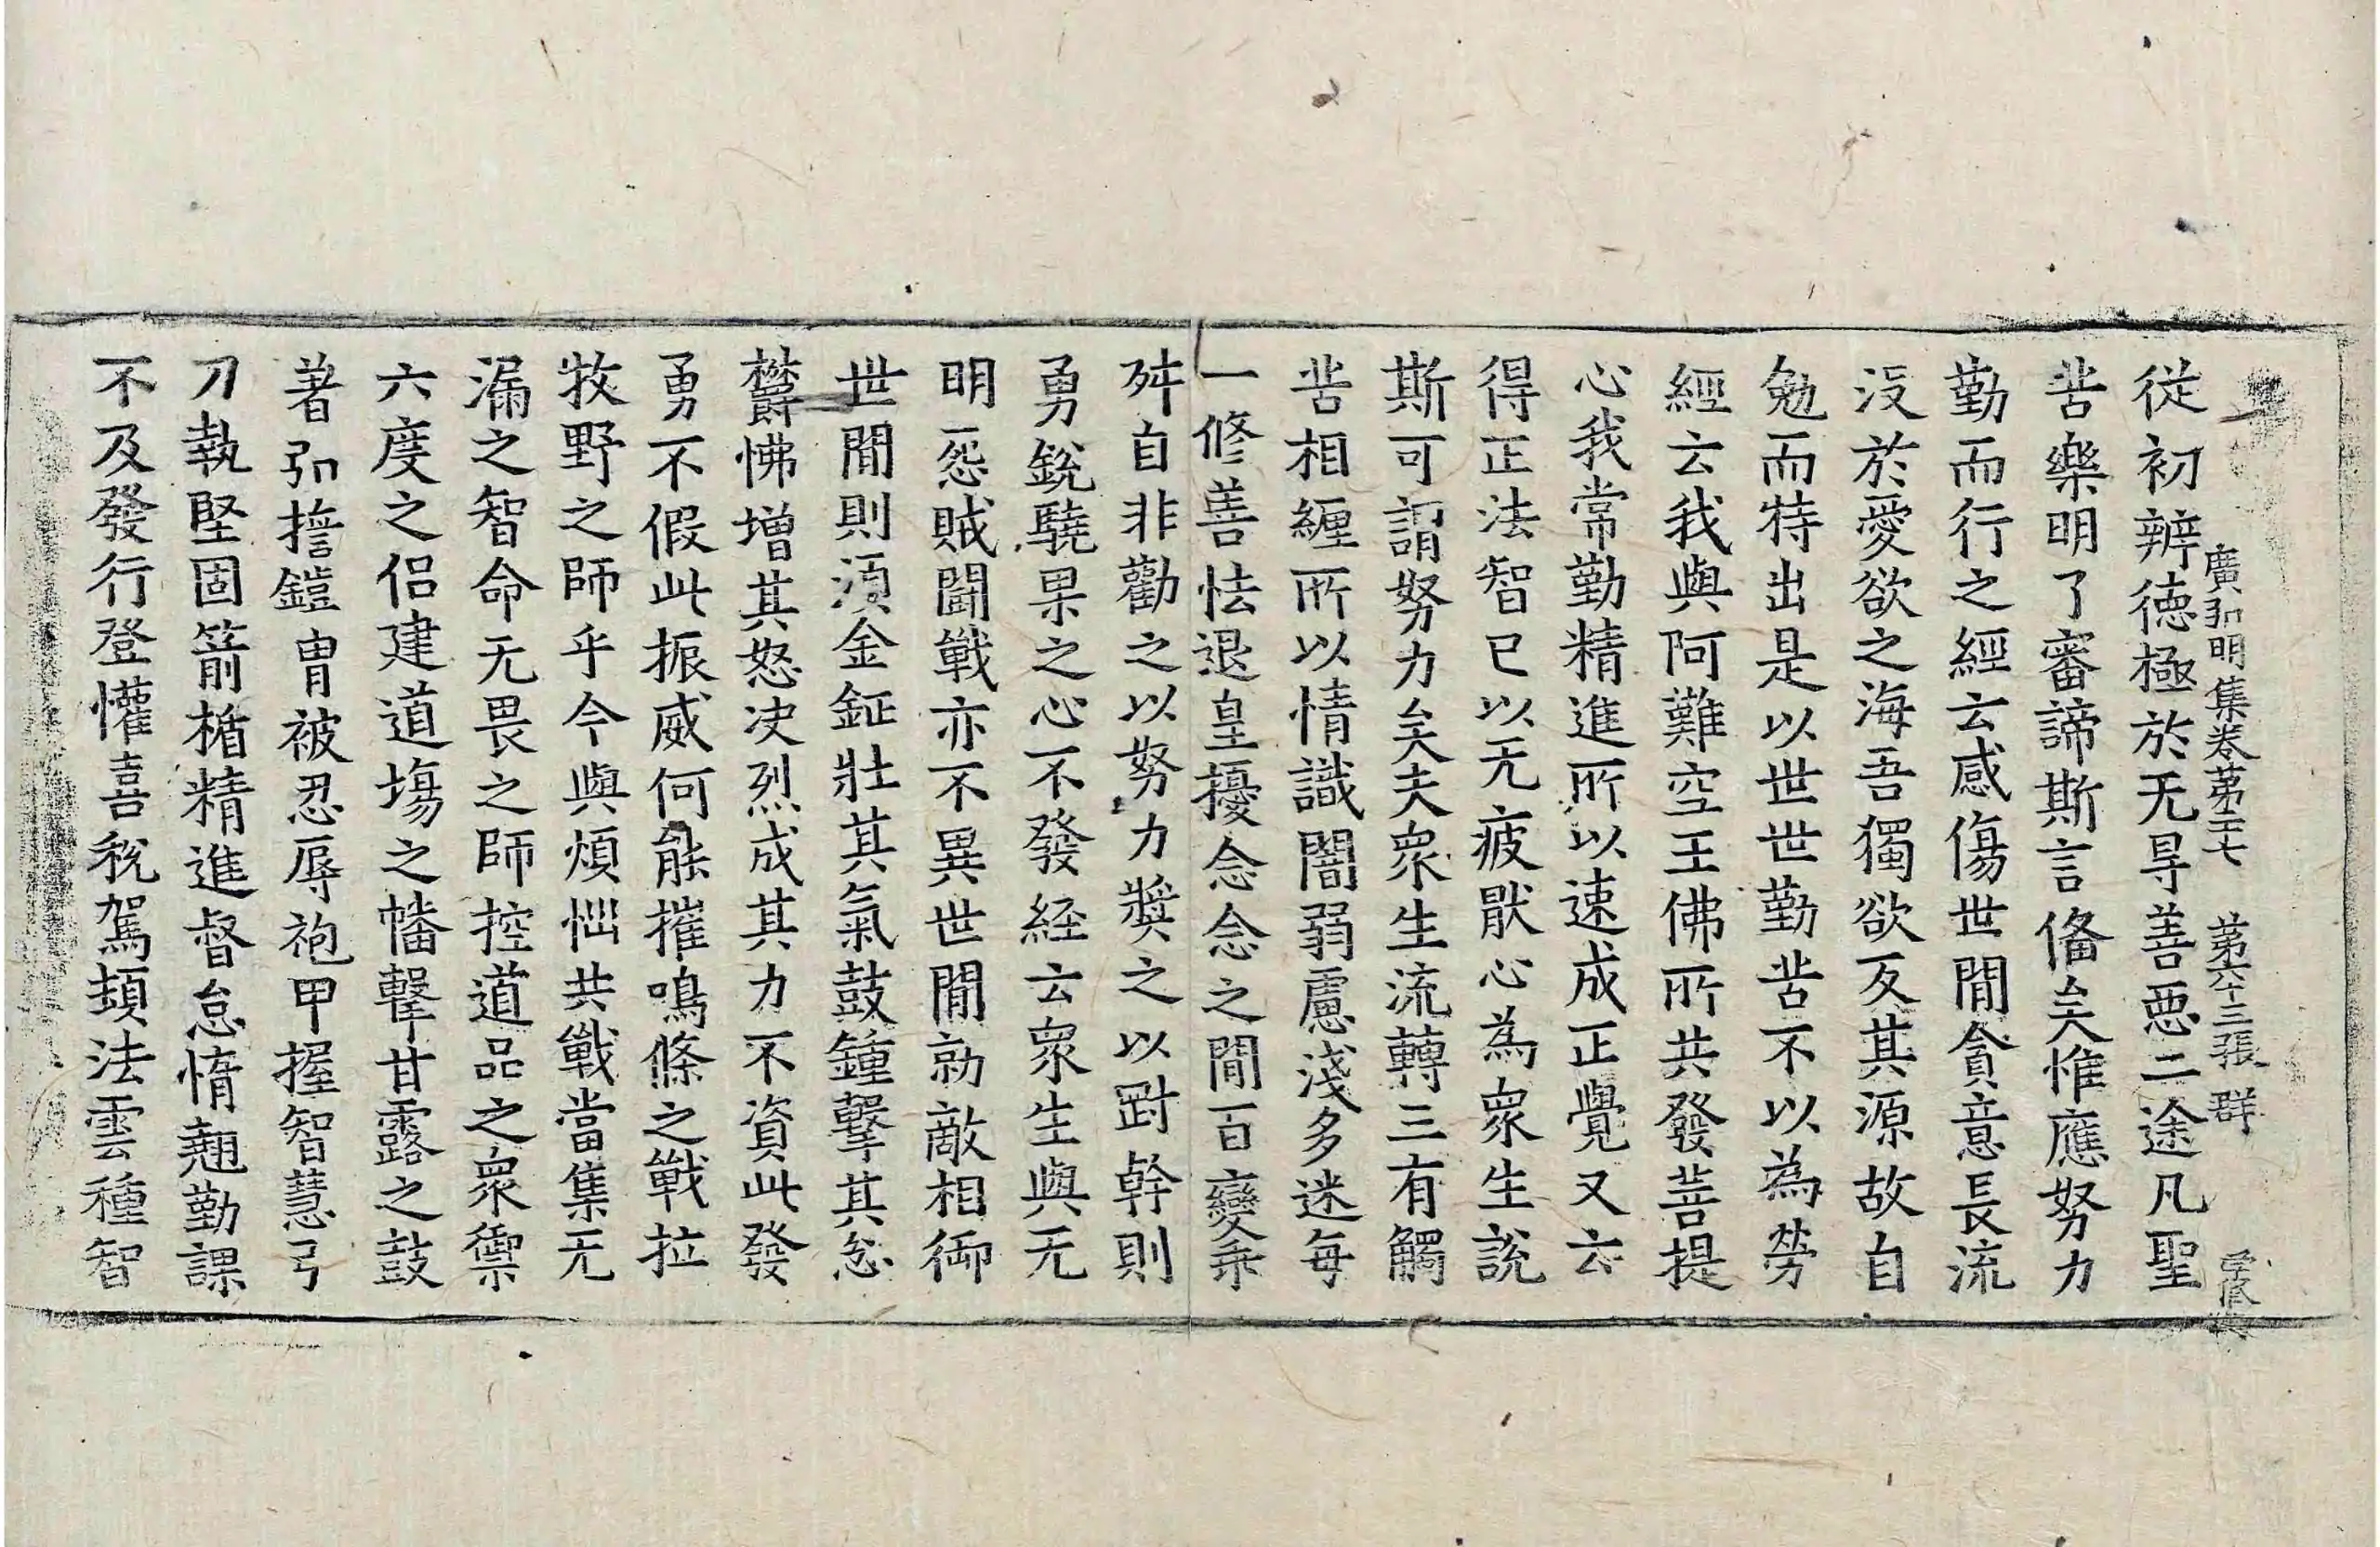 廣弘明集卷第二十七　第六十三張　群
從初辨德極於无㝵善惡二途凡聖
苦樂明了審諦斯言俻矣惟應努力
勤而行之經云感傷世間貪意長流
没於愛欲之海吾獨欲反其源故自
勉而特出是以世世勤苦不以為勞
經云我與阿難空王佛所共發菩提
心我常勤精進所以速成正覺又云
得正法智已以无疲猒心為衆生說
斯可謂努力矣夫衆生流轉三有觸
苦相纏所以情識闇弱慮淺多迷每
一修善怯退皇擾念念之間百變乖
舛自非勸之以努力奬之以尉幹則
勇銳驍果之心不發經云衆生與无
明怨賊鬪戰亦不異世間勍敵相御
世間則須金鉦壯其氣鼓鍾擊其忿
欝怫增其怒决烈成其力不資此發
勇不假此振威何能摧鳴條之戰拉
牧野之師乎今與煩惱共戰當集无
漏之智命无畏之師控道品之衆禦
六度之侣建道場之幡擊甘露之鼓
著弘誓鎧冑被忍辱袍甲握智慧弓
刀執堅固箭楯精進督怠惰翹勤課
不及發行登懽喜稅駕頻法雲種智